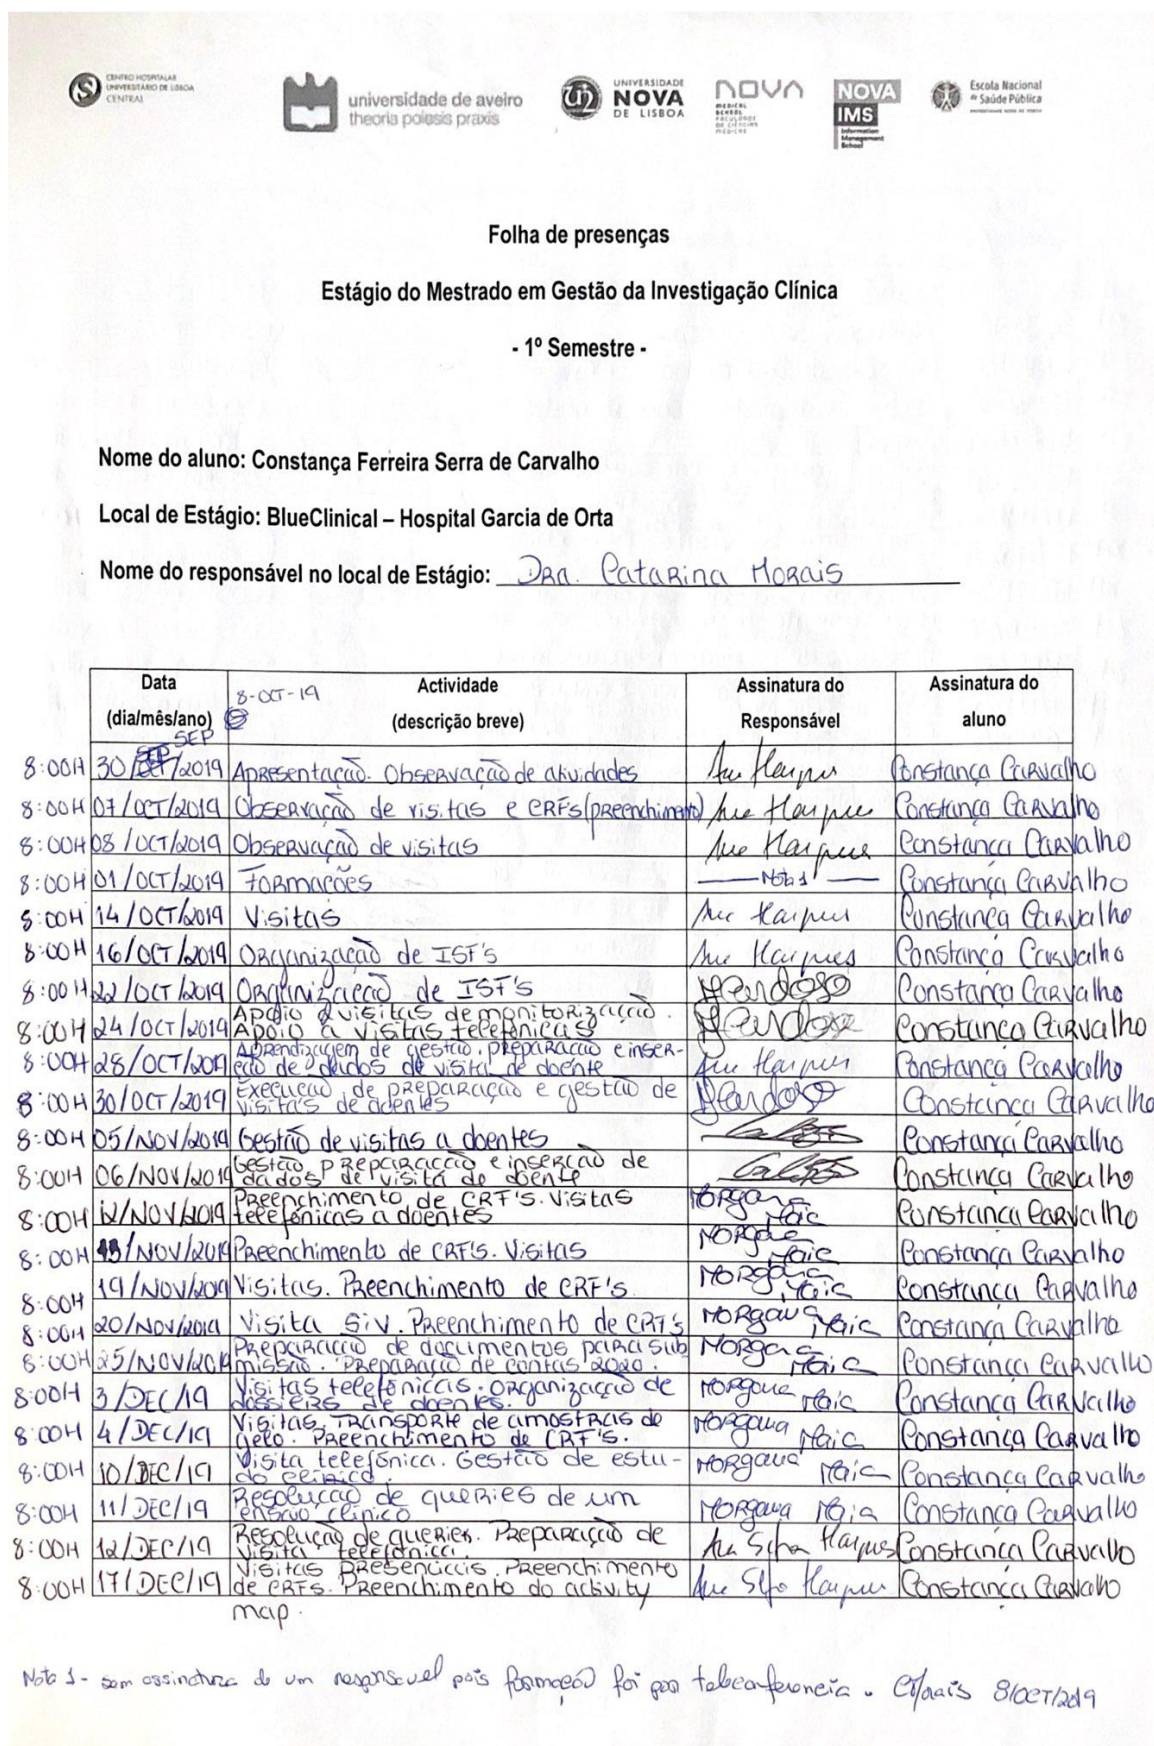 CENTRO HOSPITALAR
UNIVERSITÁRIO DE LISBOA
CENTRAL
universidade de aveiro
theoria poiesis praxis
UNIVERSIDADE
NOVA
DE LISBOA
NOVA
MEDICAL
SCHOOL
FACULDADE
DE CIÊNCIAS
MÉDICAS
NOVA
IMS
Information
Management
School
Escola Nacional
de Saúde Pública
UNIVERSIDADE NOVA DE LISBOA
Folha de presenças
Estágio do Mestrado em Gestão da Investigação Clínica
- 1º Semestre -
Nome do aluno: Constança Ferreira Serra de Carvalho
Local de Estágio: BlueClinical – Hospital Garcia de Orta
Nome do responsável no local de Estágio: Dra. Catarina Morais
Data (dia/mês/ano) Actividade (descrição breve) Assinatura do Responsável Assinatura do aluno
8-OCT-19
SEP
8:00H 30/SEP/2019 Apresentação. Observação de atividades Ana Marques Constança Carvalho
8:00H 07/OCT/2019 Observação de visitas e CRFs (preenchimento) Ana Marques Constança Carvalho
8:00H 08/OCT/2019 Observação de visitas Ana Marques Constança Carvalho
8:00H 01/OCT/2019 Formações Nota 1 Constança Carvalho
8:00H 14/OCT/2019 Visitas Ana Marques Constança Carvalho
8:00H 16/OCT/2019 Organização de ISF's Ana Marques Constança Carvalho
8:00H 22/OCT/2019 Organização de ISF's Constança Carvalho
8:00H 24/OCT/2019 Apoio a visitas de monitorização.
Apoio a visitas telefónicas Constança Carvalho
8:00H 28/OCT/2019 Aprendizagem de gestão, preparação e inser-
ção de dados de visita de doente Ana Marques Constança Carvalho
8:00H 30/OCT/2019 Execução de preparação e gestão de
visitas de doentes Constança Carvalho
8:00H 05/NOV/2019 Gestão de visitas a doentes Constança Carvalho
8:00H 06/NOV/2019 Gestão, preparação e inserção de
dados de visita de doente Constança Carvalho
8:00H 12/NOV/2019 Preenchimento de CRF's. Visitas
telefónicas a doentes Morgana Maia Constança Carvalho
8:00H 13/NOV/2019 Preenchimento de CRF's. Visitas Morgana Maia Constança Carvalho
8:00H 19/NOV/2019 Visitas. Preenchimento de CRF's. Morgana Maia Constança Carvalho
8:00H 20/NOV/2019 Visita SIV. Preenchimento de CRF's Morgana Maia Constança Carvalho
8:00H 25/NOV/2019 Preparação de documentos para sub
missão. Preparação de contas 2020. Morgana Maia Constança Carvalho
8:00H 3/DEC/19 Visitas telefónicas. Organização de
dossiers de doentes. Morgana Maia Constança Carvalho
8:00H 4/DEC/19 Visitas. Transporte de amostras de
gelo. Preenchimento de CRF's. Morgana Maia Constança Carvalho
8:00H 10/DEC/19 Visita telefónica. Gestão de estu-
do clínico. Morgana Maia Constança Carvalho
8:00H 11/DEC/19 Resolução de queries de um
ensaio clínico Morgana Maia Constança Carvalho
8:00H 12/DEC/19 Resolução de queries. Preparação de
visita telefónica. Ana Sofia Marques Constança Carvalho
8:00H 17/DEC/19 Visitas presenciais. Preenchimento
de CRFs. Preenchimento do activity
map. Ana Sofia Marques Constança Carvalho
Nota 1 - sem assinatura de um responsável pois formação foi por teleconferencia. CMorais 8/OCT/2019